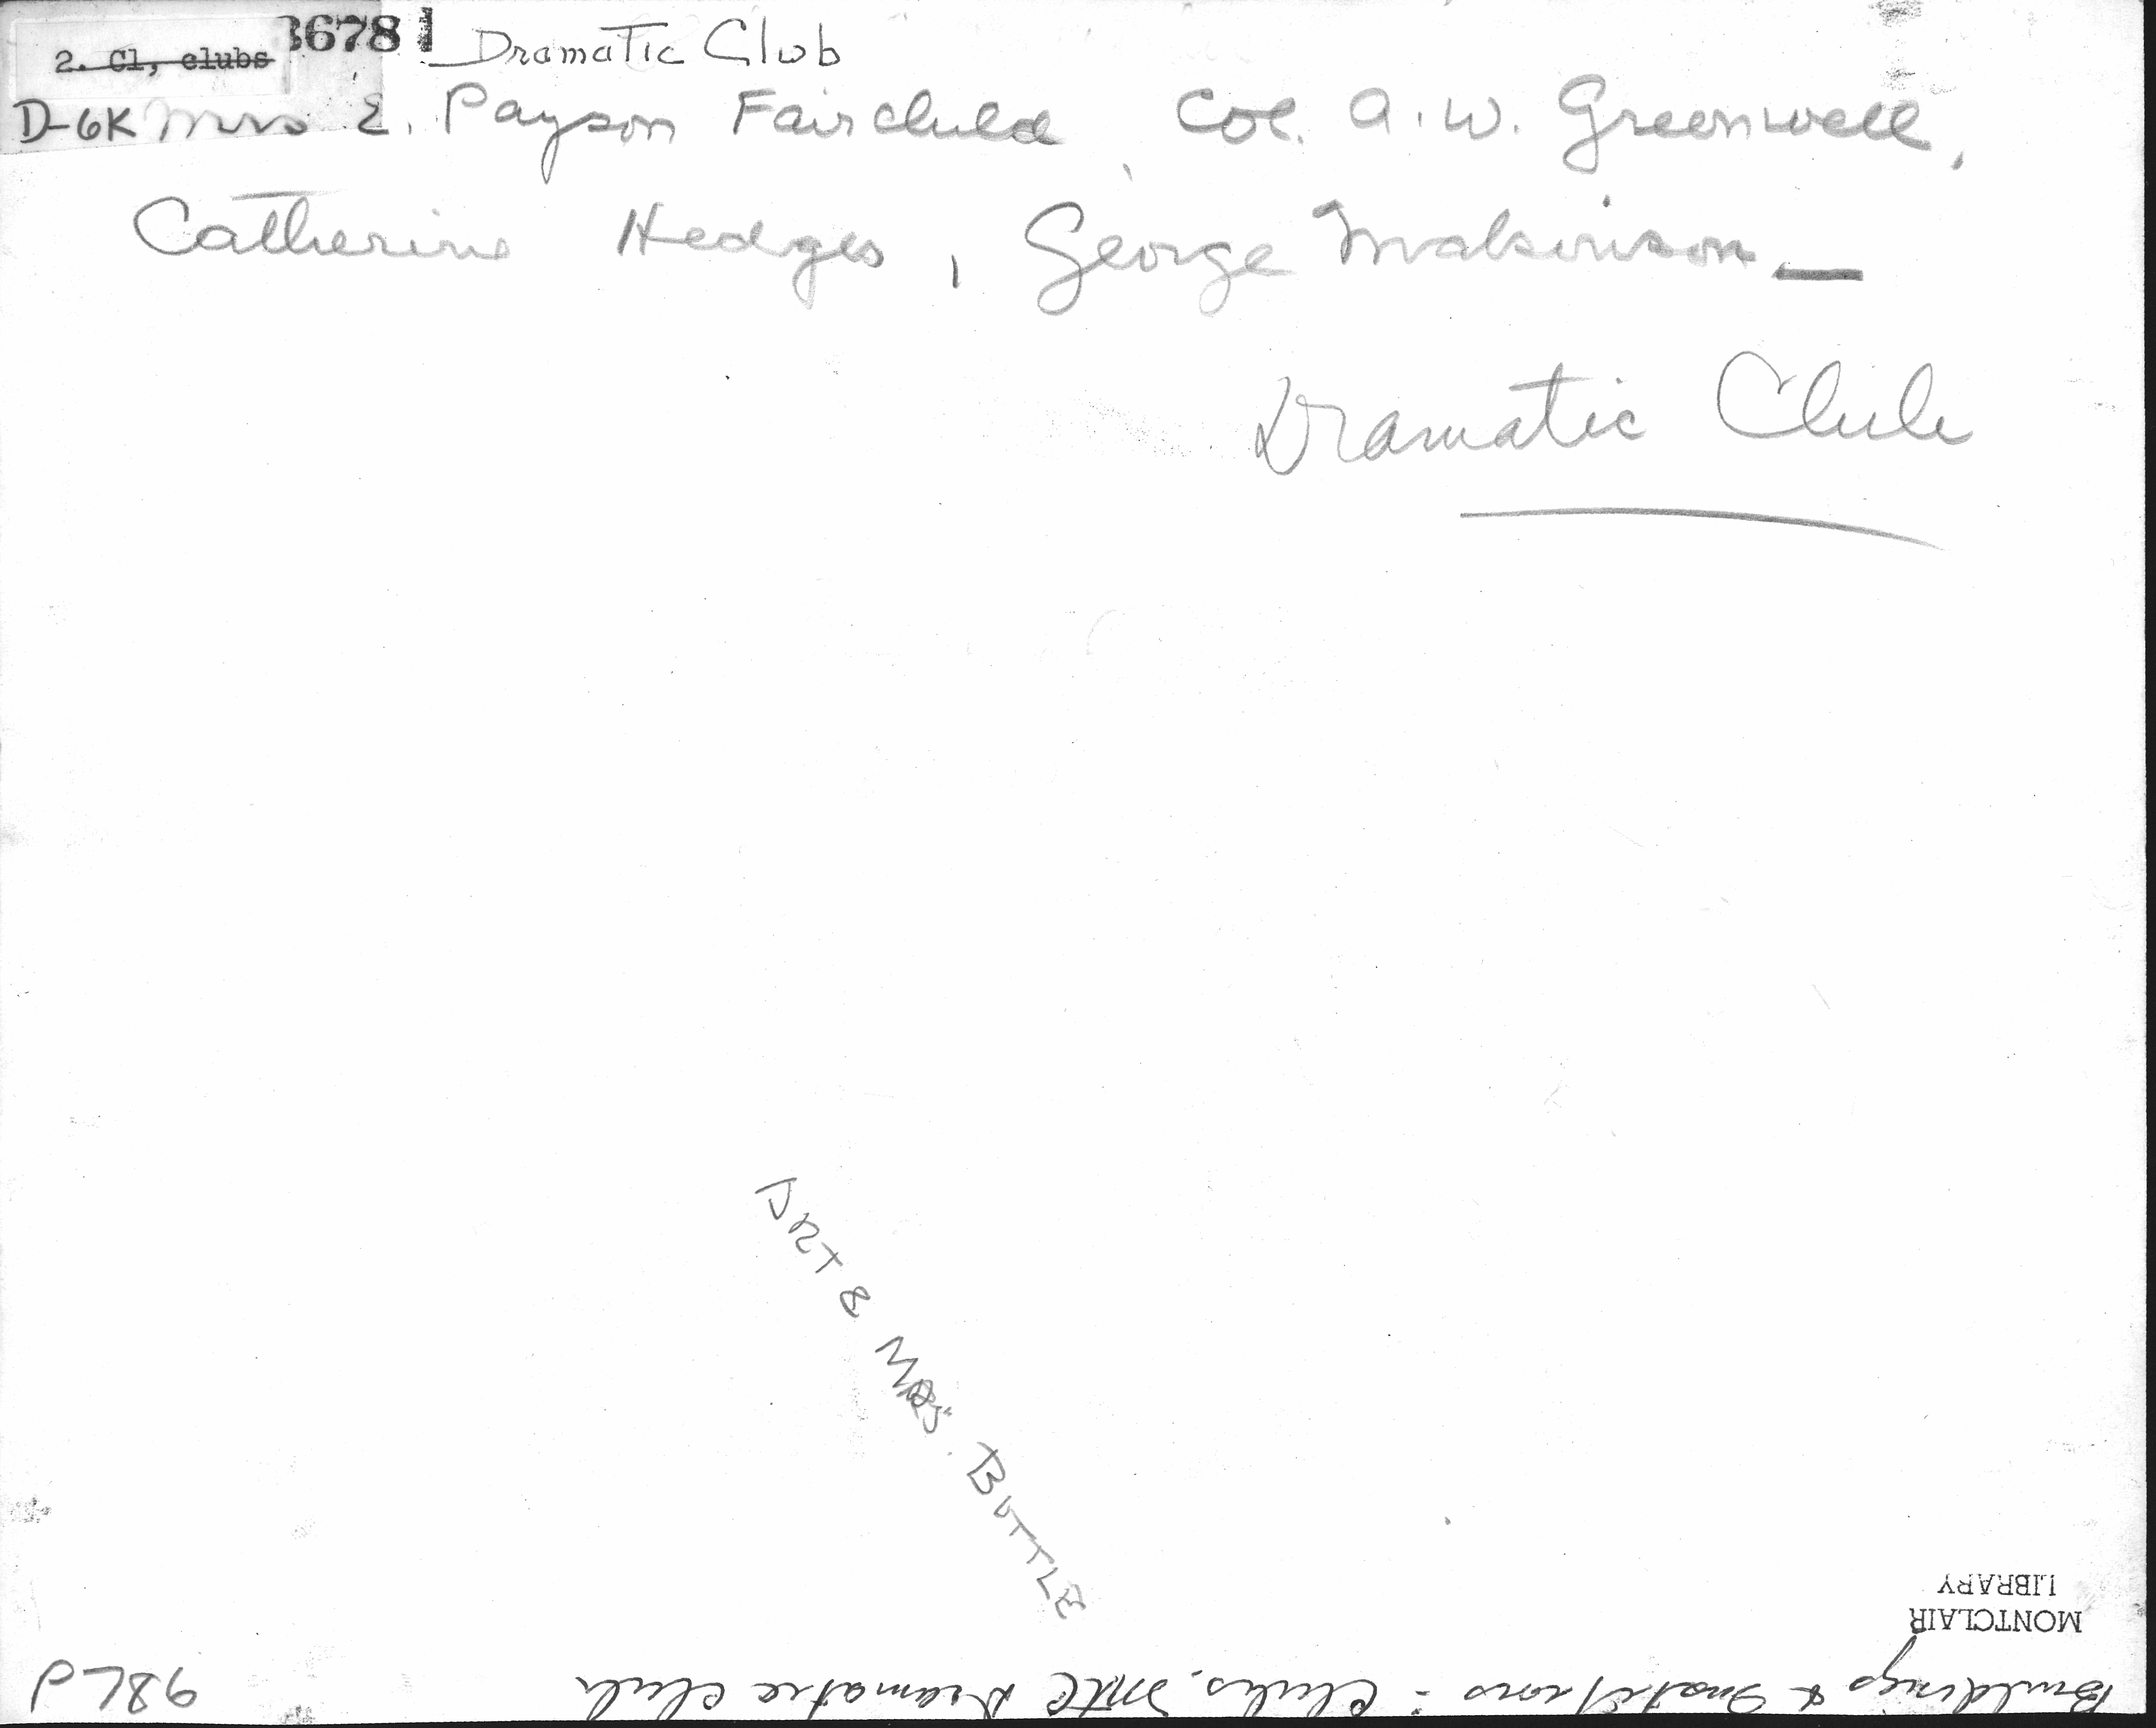 36781 Dramatic Club
2. Cl, clubs
D-6K Mrs E. Payson Fairchild, Col. A.W. Greenwell,
Catherine Hedges, George Makinson—
Dramatic Club
JRT & MRS. BUTTLE
MONTCLAIR
LIBRARY
Buildings & Institutions: Clubs, Mtc Dramatic Club